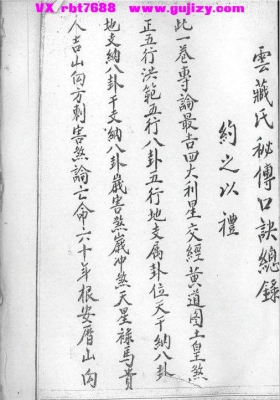 VX rbt7688 www.gujizy.com
雲藏氏秘傳口訣總錄
約之以禮
此一卷專論最吉四大利星交經黃道圖土皇煞
正五行洪範五行八卦五行地支属卦位天干納八卦
地支納八卦干支納八卦歲害煞歲冲煞天星祿馬貴
人吉山向方刺害煞論亡命六十年根安曆山向